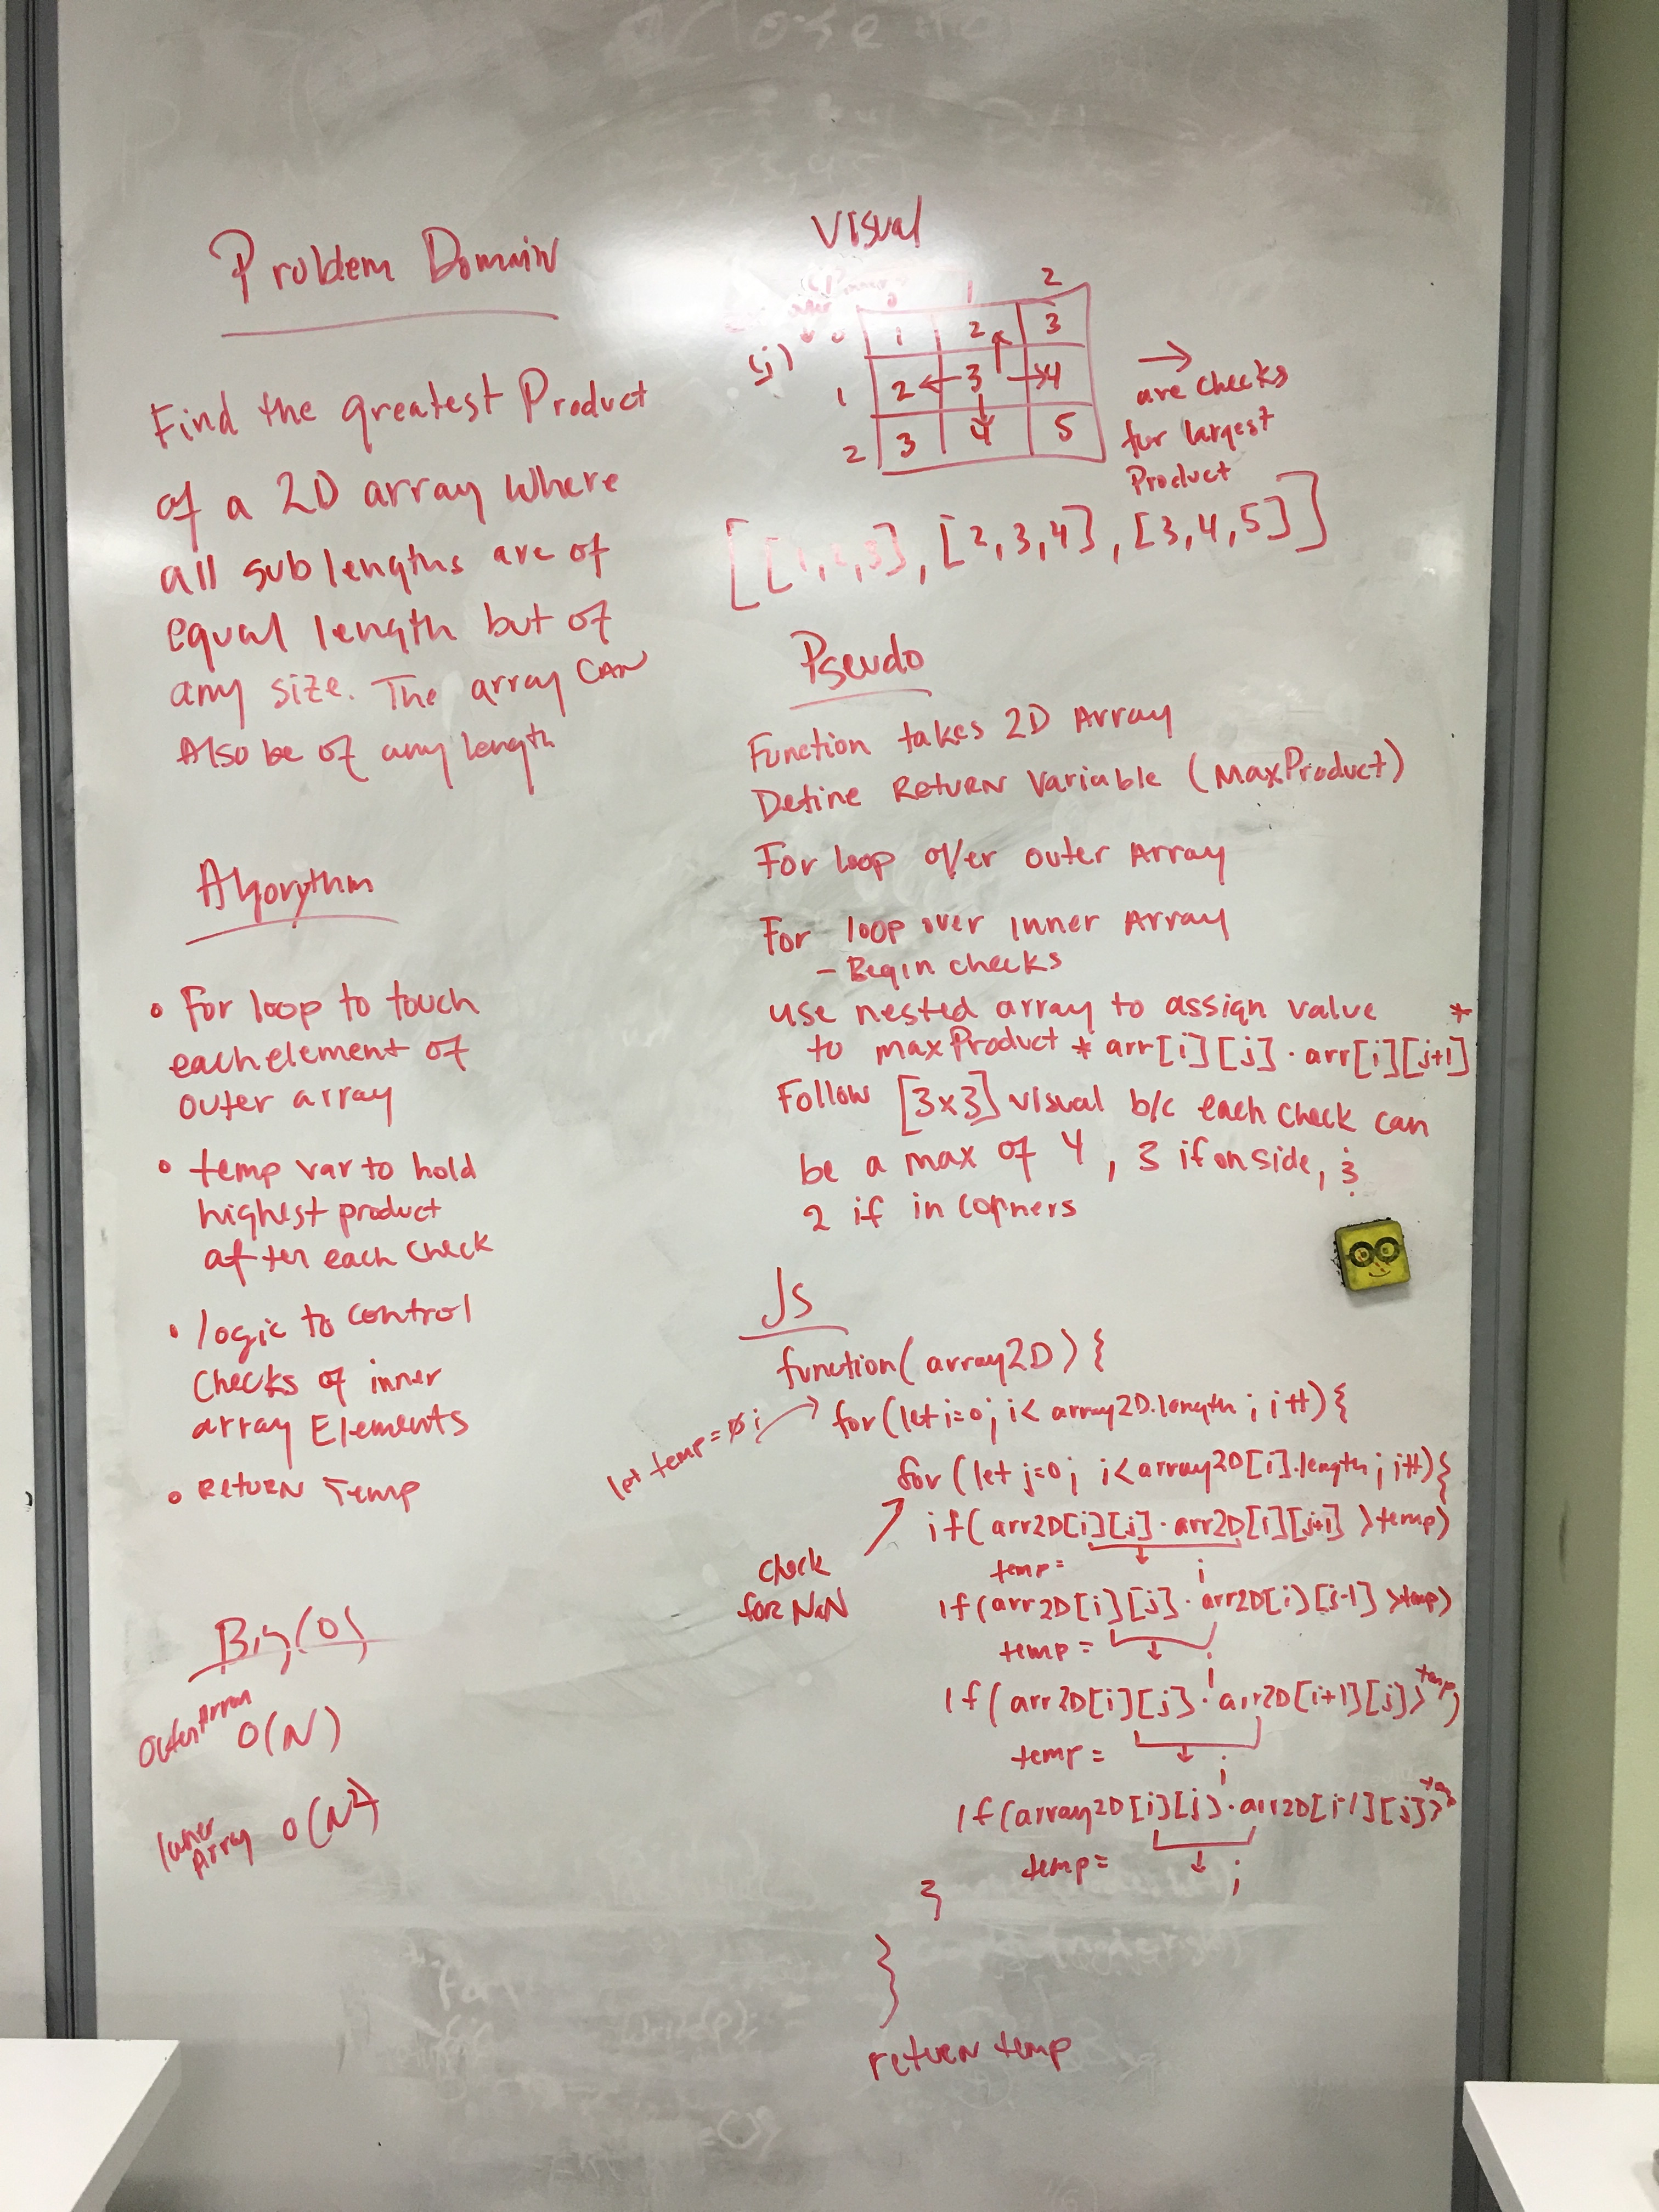 Problem Domain
Find the greatest Product
of a 2D array where
all sub lengths are of
equal length but of
any size. The array CAN
Also be of any length
Algorythm
• For loop to touch
each element of
outer array
• temp var to hold
highest product
after each check
• logic to control
checks of inner
array Elements
• RETURN Temp
Big(O)
Outer Array O(N)
Inner Array O(N²)
Visual
0 1 2
(j) 0 1 2 3
1 2 ← 3 → 4
2 3 4 5
→
are checks
for largest
Product
[[1,2,3], [2,3,4], [3,4,5]]
Pseudo
Function takes 2D Array
Define RETURN Variable (MaxProduct)
For loop over outer Array
For loop over Inner Array
- Begin checks
use nested array to assign value *
to maxProduct * arr[i][j] · arr[i][j+1]
Follow [3x3] visual b/c each check can
be a max of 4, 3 if on side, &
2 if in corners
Js
function( array2D ) {
let temp = 0; → for(let i=0; i< array2D.length; i++){
for (let j=0; i< array2D[i].length; i++){
if( arr2D[i][j] · arr2D[i][j+1] > temp)
temp = ↓ ;
check
for NaN
if(arr2D[i][j] · arr2D[i][j-1] > temp)
temp = ↓ ;
If( arr2D[i][j] · arr2D[i+1][j] > temp)
temp = ↓ ;
If(array2D[i][j] · arr2D[i-1][j] >
temp = ↓ ;
}
}
return temp